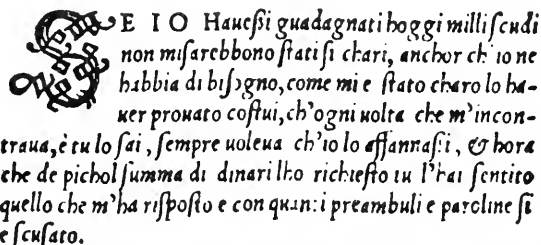 SE IO Haueſſi guadagnati hoggi milli ſcudi
non miſarebbono ſtati ſi chari, anchor ch'io ne
habbia di biſogno, come mi e ſtato charo lo ha-
uer prouato coſtui, ch'ogni uolta che m'incon-
traua, è tu lo ſai, ſempre uoleua ch'io lo affannaſſi, & hora
che de pichol ſumma di dinari lho richieſto tu l'hai ſentito
quello che m'ha riſpoſto e con quanti preambuli e paroline ſi
e ſcuſato.